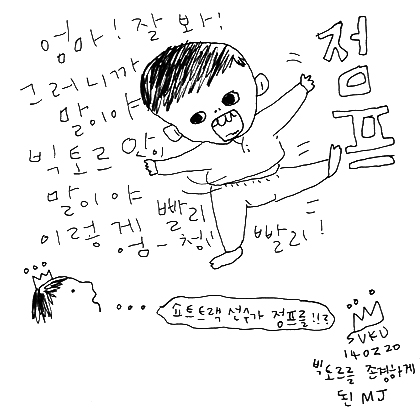 엄마! 잘 봐!
그러니까
말이야
빅토르 안이
말이야
이렇게 빨리
엄-청!! 빨리!
점프
쇼트트랙 선수가 점프를!!?
SVKU
140220
빅토르를 존경하게
된 MJ